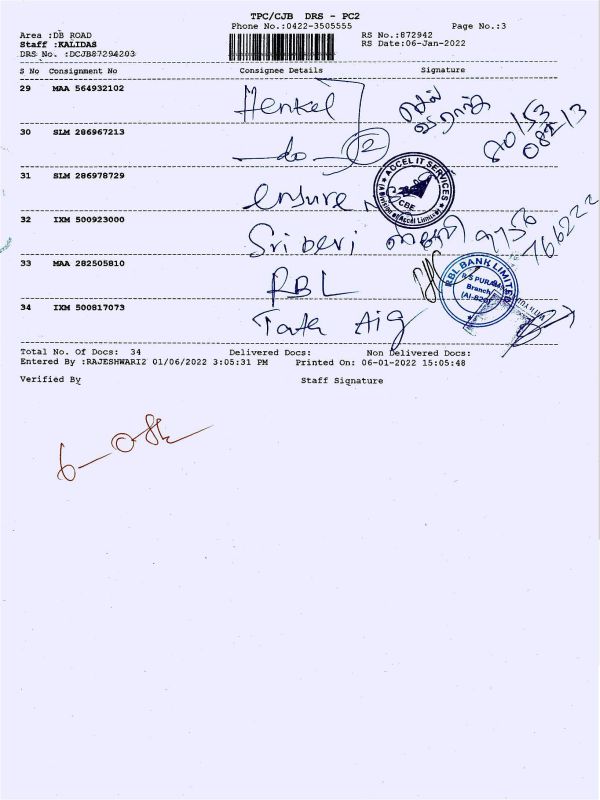 TPC/CJB DRS - PC2
Phone No.:0422-3505555 Page No.:3
Area :DB ROAD RS No.:872942
Staff :KALIDAS RS Date:06-Jan-2022
DRS No. :DCJB87294203
S No Consignment No Consignee Details Signature
29 MAA 564932102 Henkel
80153
08213
30 SLM 286967213 —do— 2
31 SLM 286978729 ensure
ACCEL IT SERVICES
(A Division of Accel Limited)
CBE
32 IXM 500923000 Sri Devi
766222
33 MAA 282505810 RBL
RBL BANK LIMITED
R S PURAM
Branch
34 IXM 500817073 Tata Aig
Total No. Of Docs: 34 Delivered Docs: Non Delivered Docs:
Entered By :RAJESHWARI2 01/06/2022 3:05:31 PM Printed On: 06-01-2022 15:05:48
Verified By Staff Signature